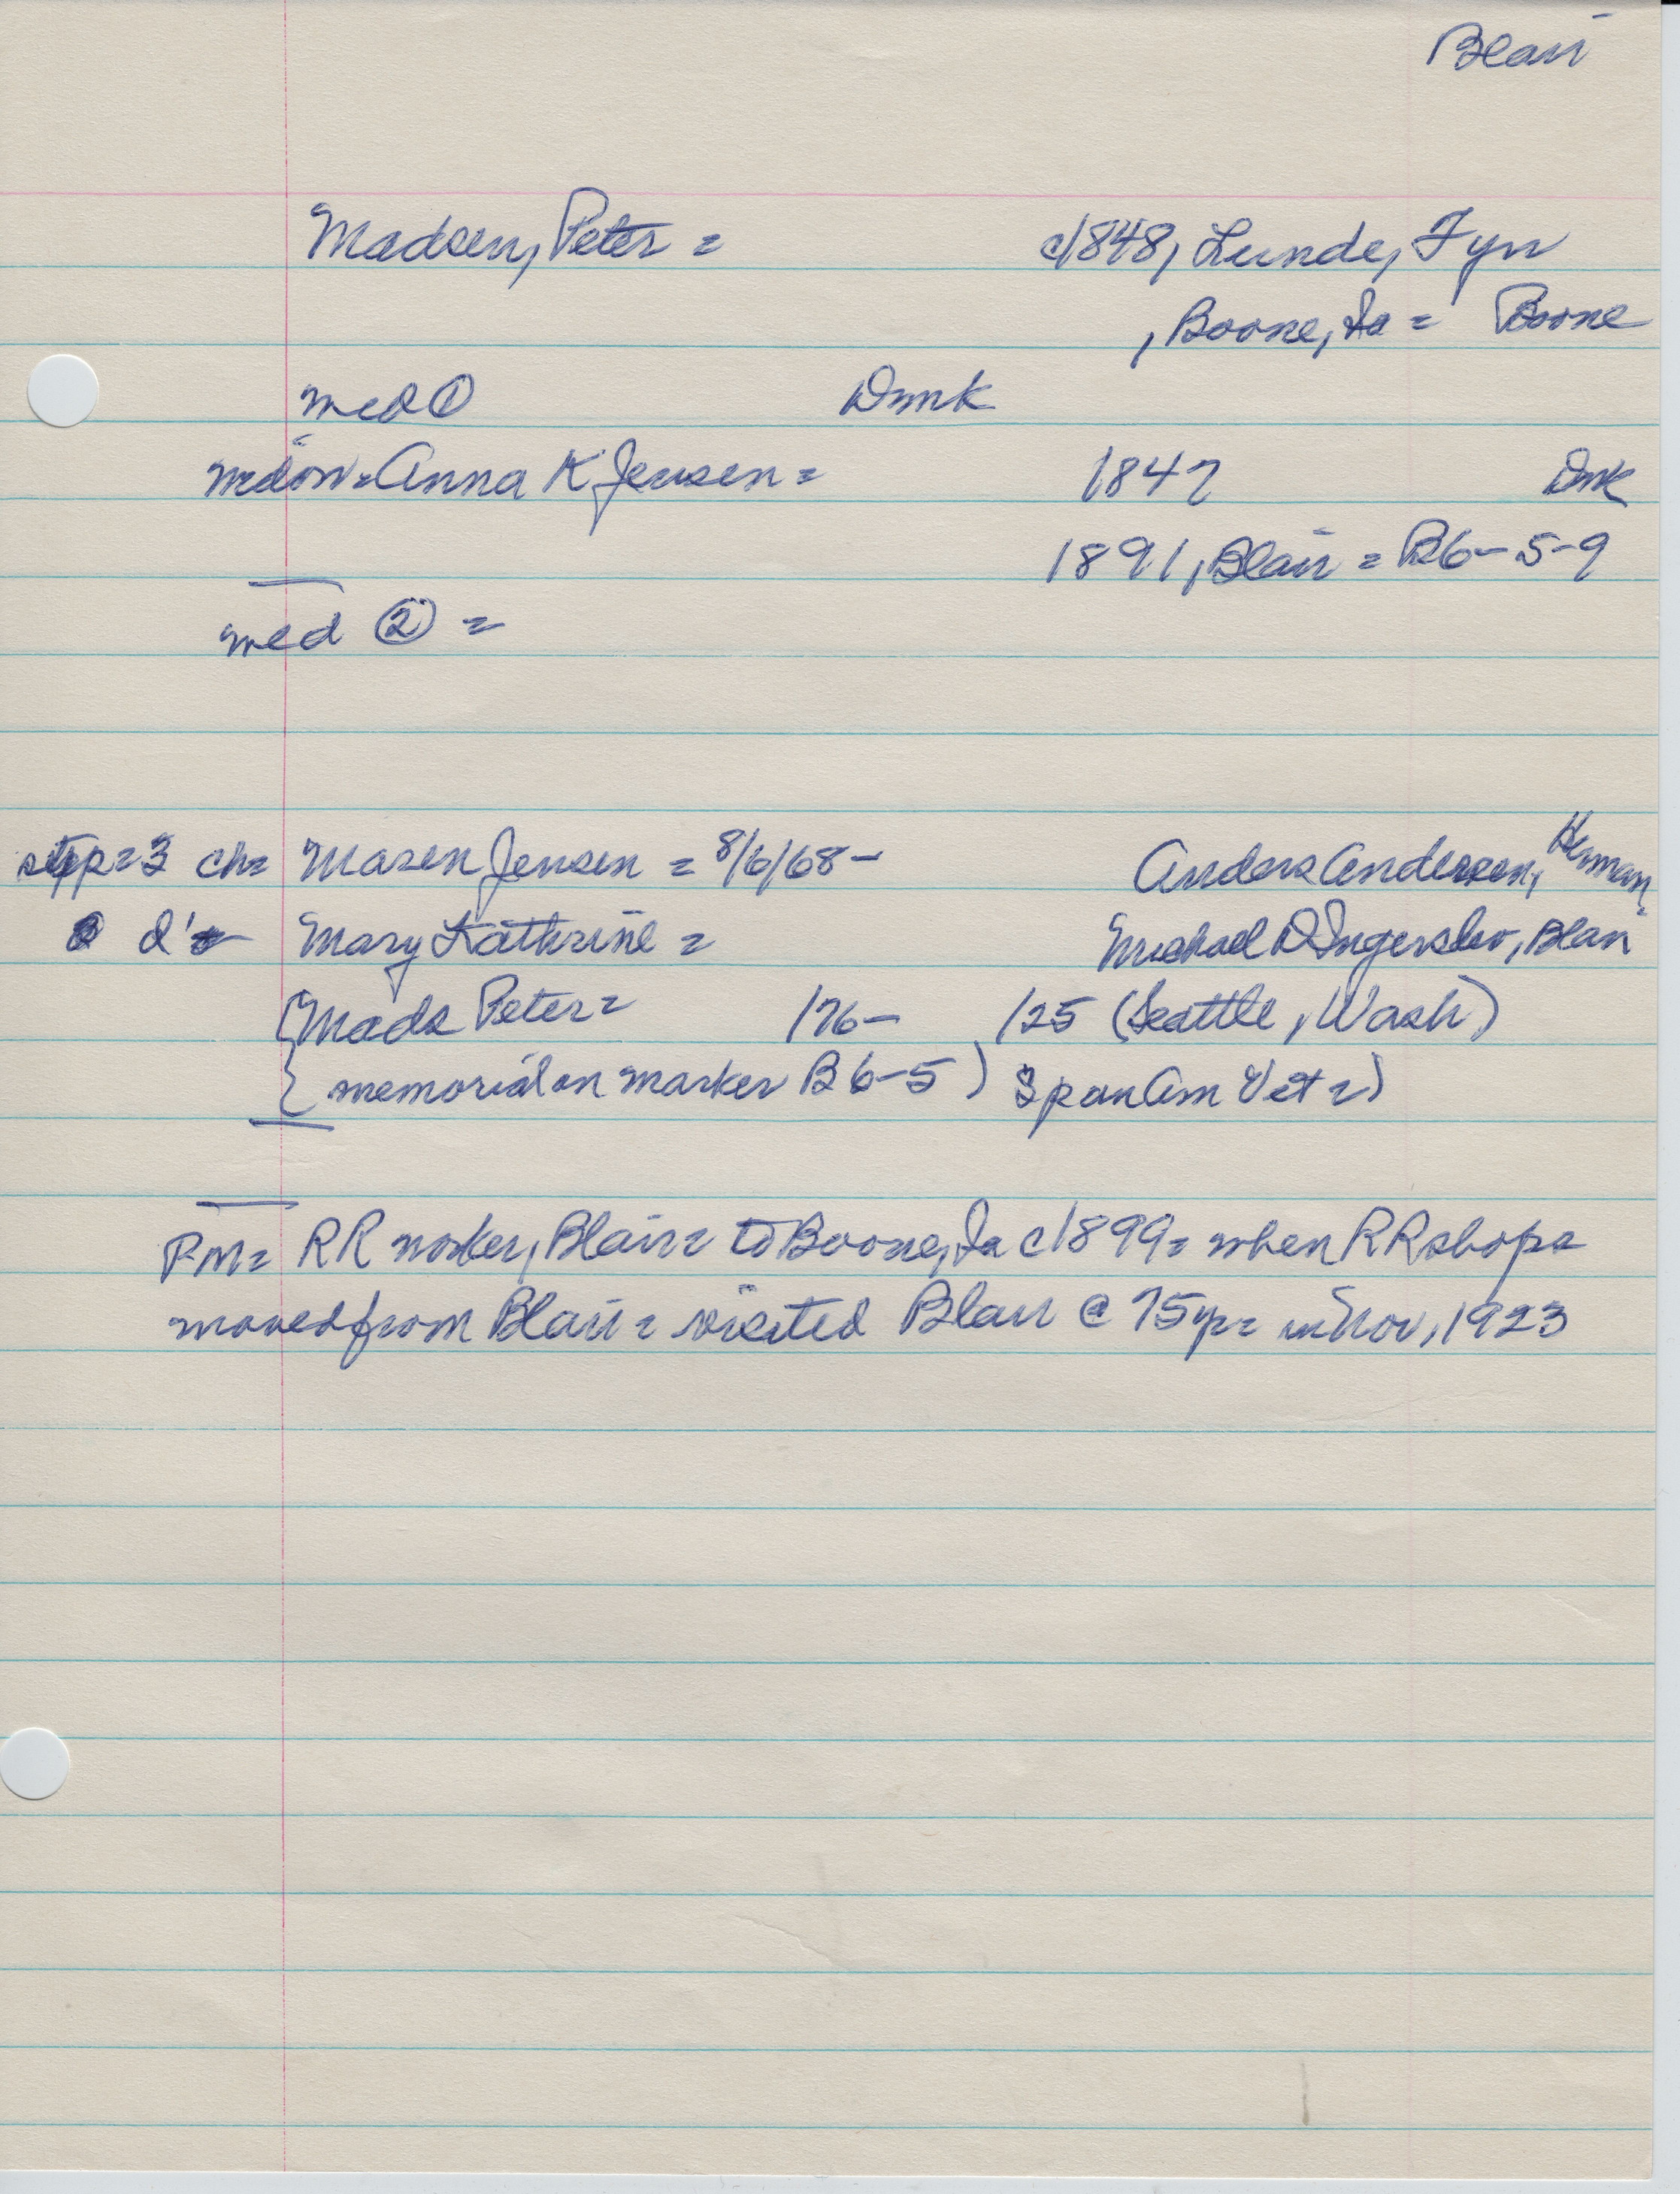 Blair
Madsen, Peter = c1848, Lunde, Fyn
, Boone, Ia = Boone
med ① Dmk
Anna K Jensen = 1847 Dmk
1891, Blair = B6-5-9
med ② =
step = 3 ch = Maren Jensen = 8/6/68- Anders Andersen, Herman
d' Mary Kathrine = Michael D Ingerslev, Blair
{Mads Peter = /76- /25 (Seattle, Wash)
{ memorial on marker B6-5) Span Am Vet =)
PM = RR worker, Blair = to Boone, Ia c1899 = when RR shops
moved from Blair = visited Blair @ 75yr = in Nov, 1923